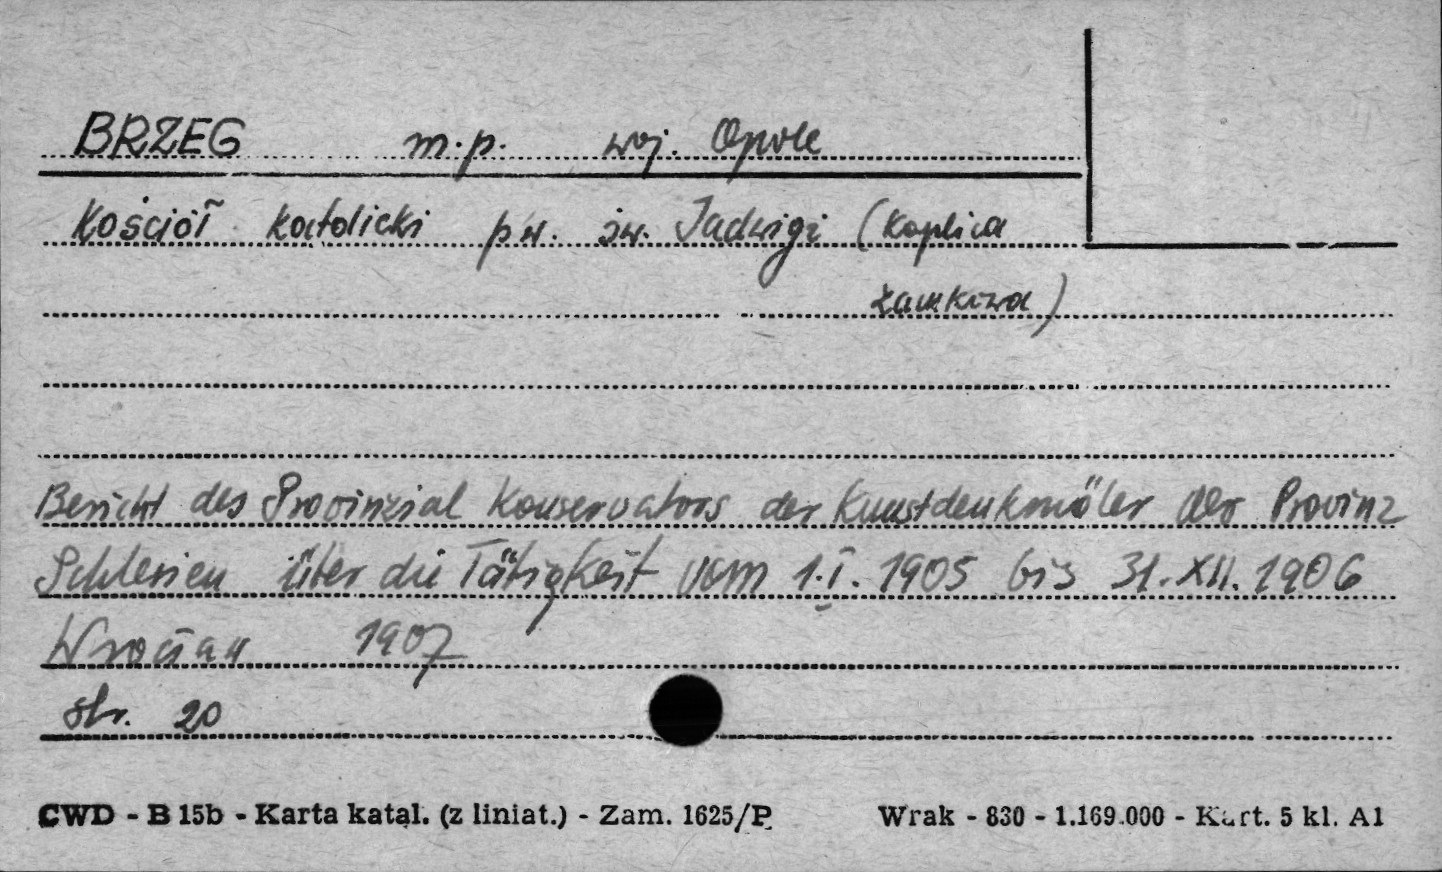 BRZEG m.p. woj. Opole
Kościół katolicki p.w. św. Jadwigi (Kaplica
zamkowa)
Bericht des Provinzial Konservators der Kunstdenkmäler der Provinz
Schlesien über die Tätigkeit vom 1.I. 1905 bis 31.XII. 1906
Wrocław 1907
str. 20
CWD - B 15b - Karta katal. (z liniat.) - Zam. 1625/P. Wrak - 830 - 1.169.000 - Kart. 5 kl. A1